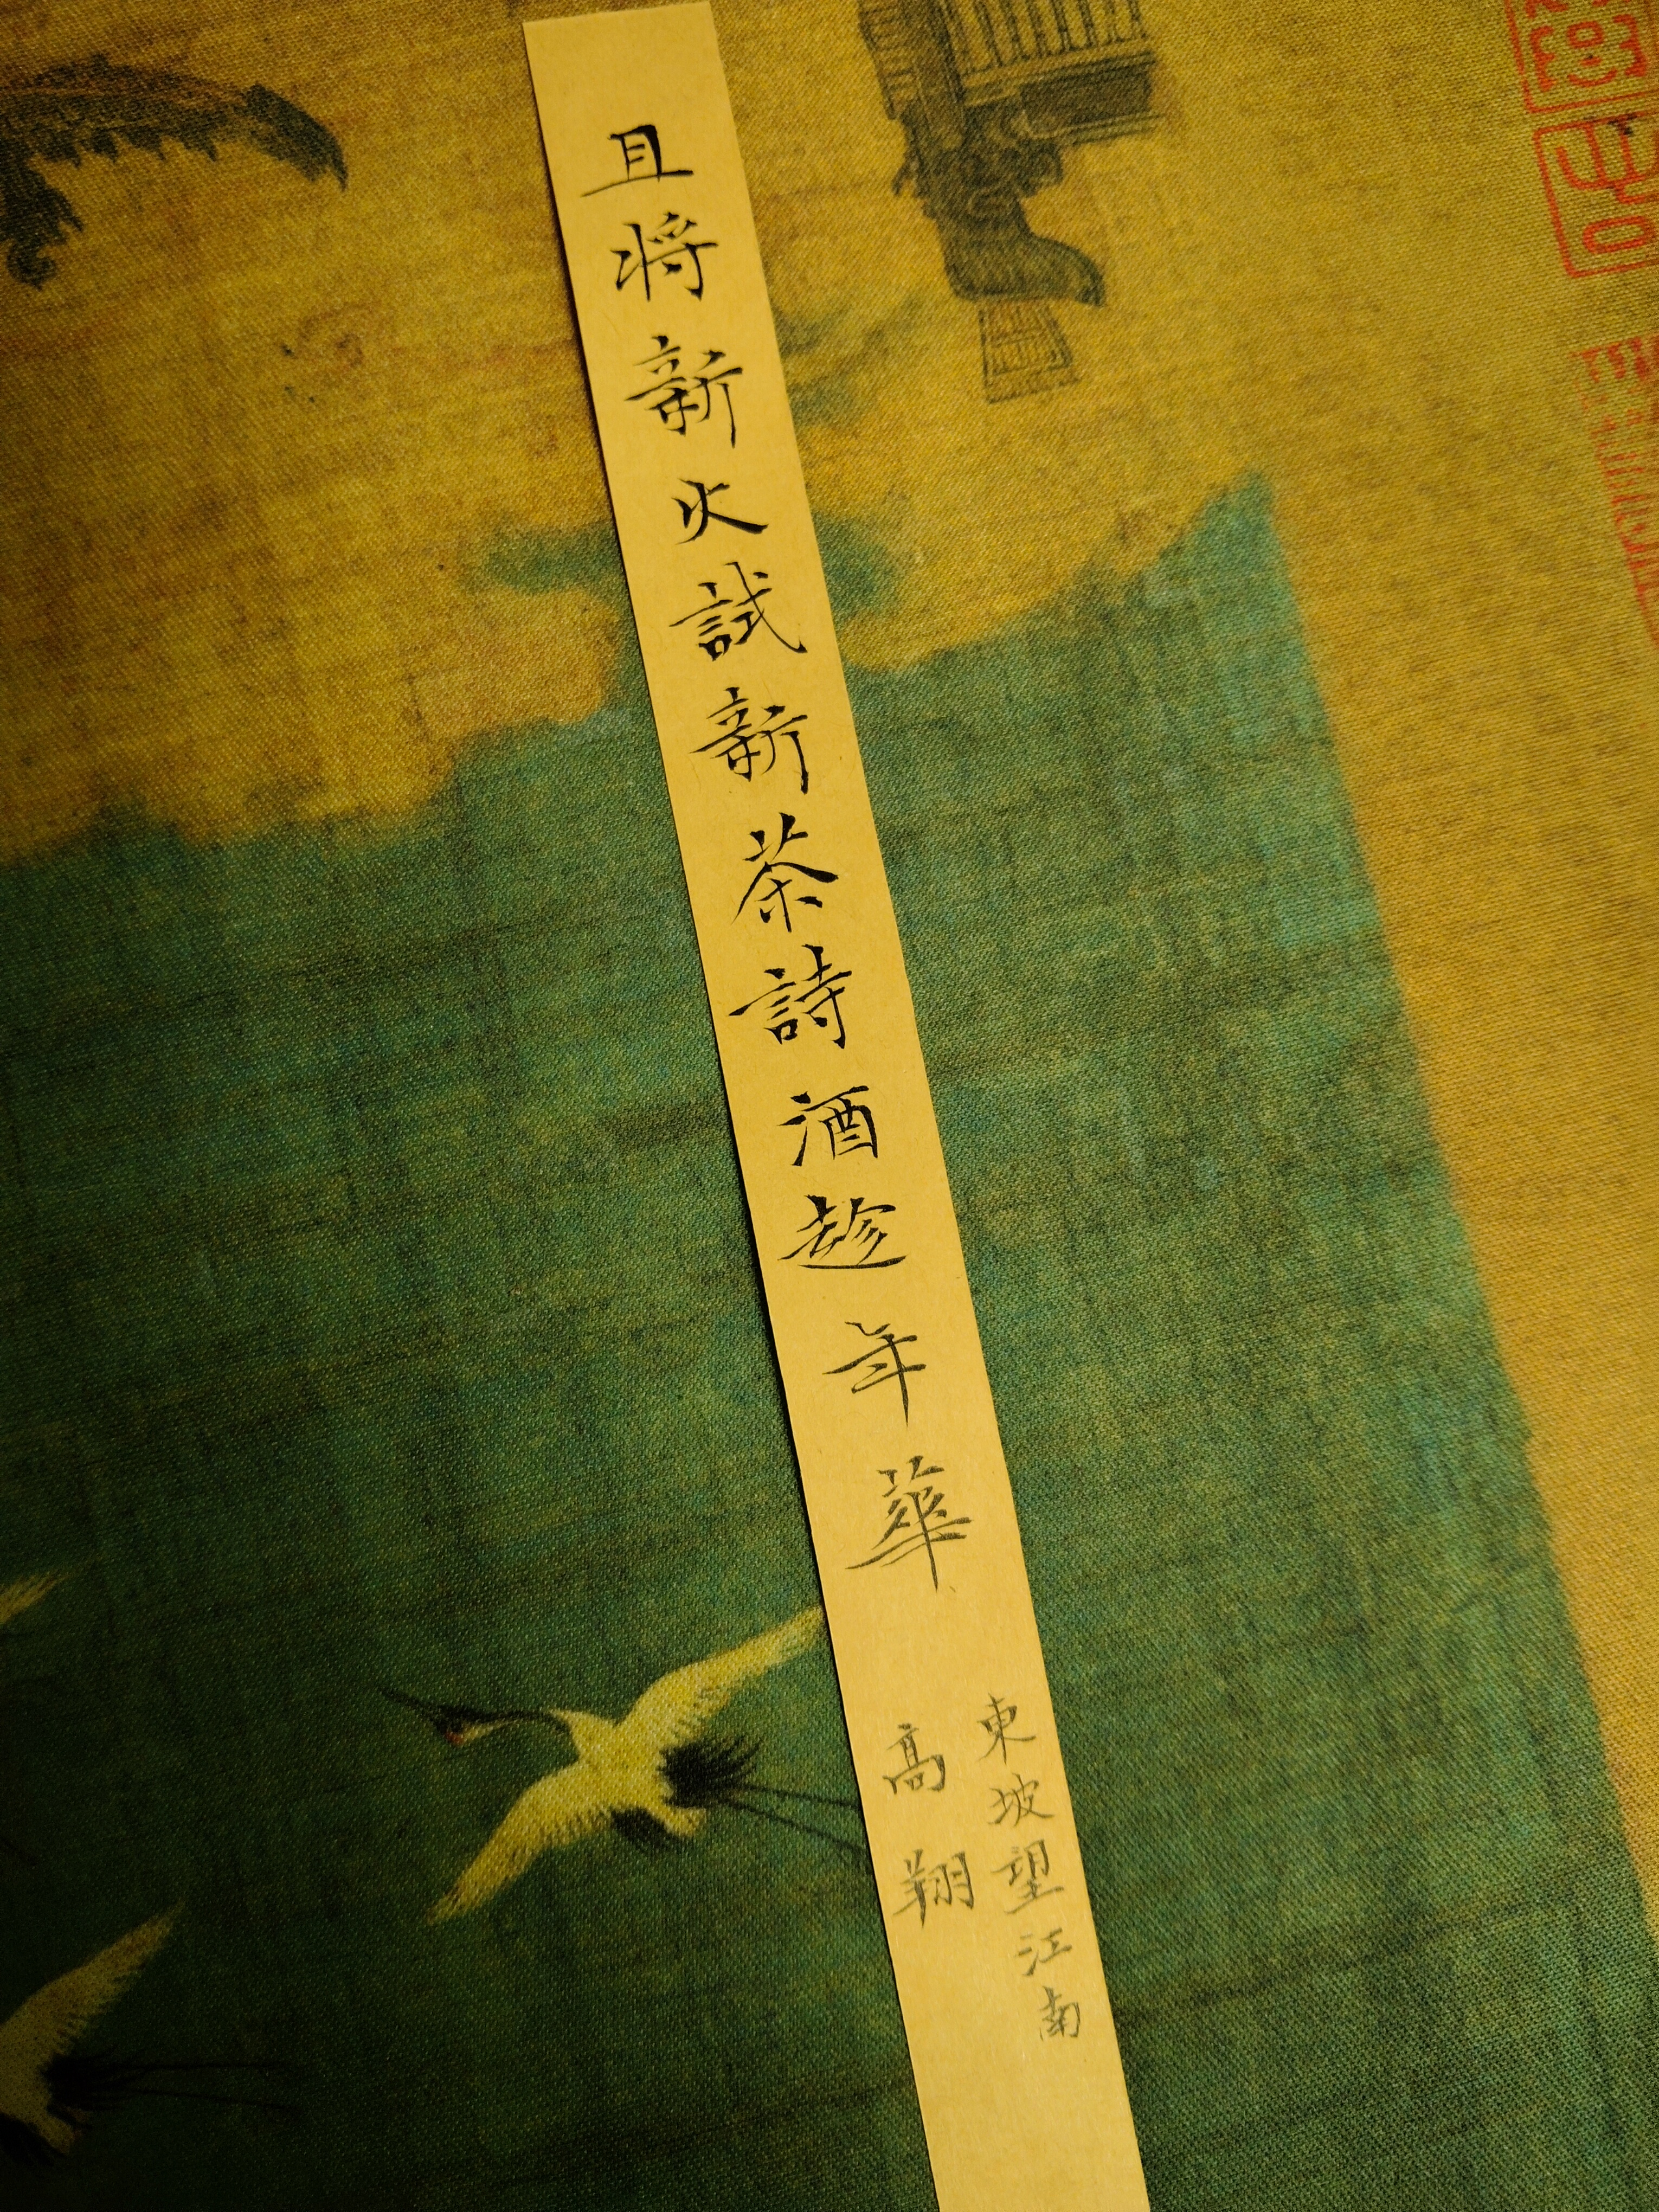 且将新火試新茶詩酒趁年華
東坡望江南
高翔